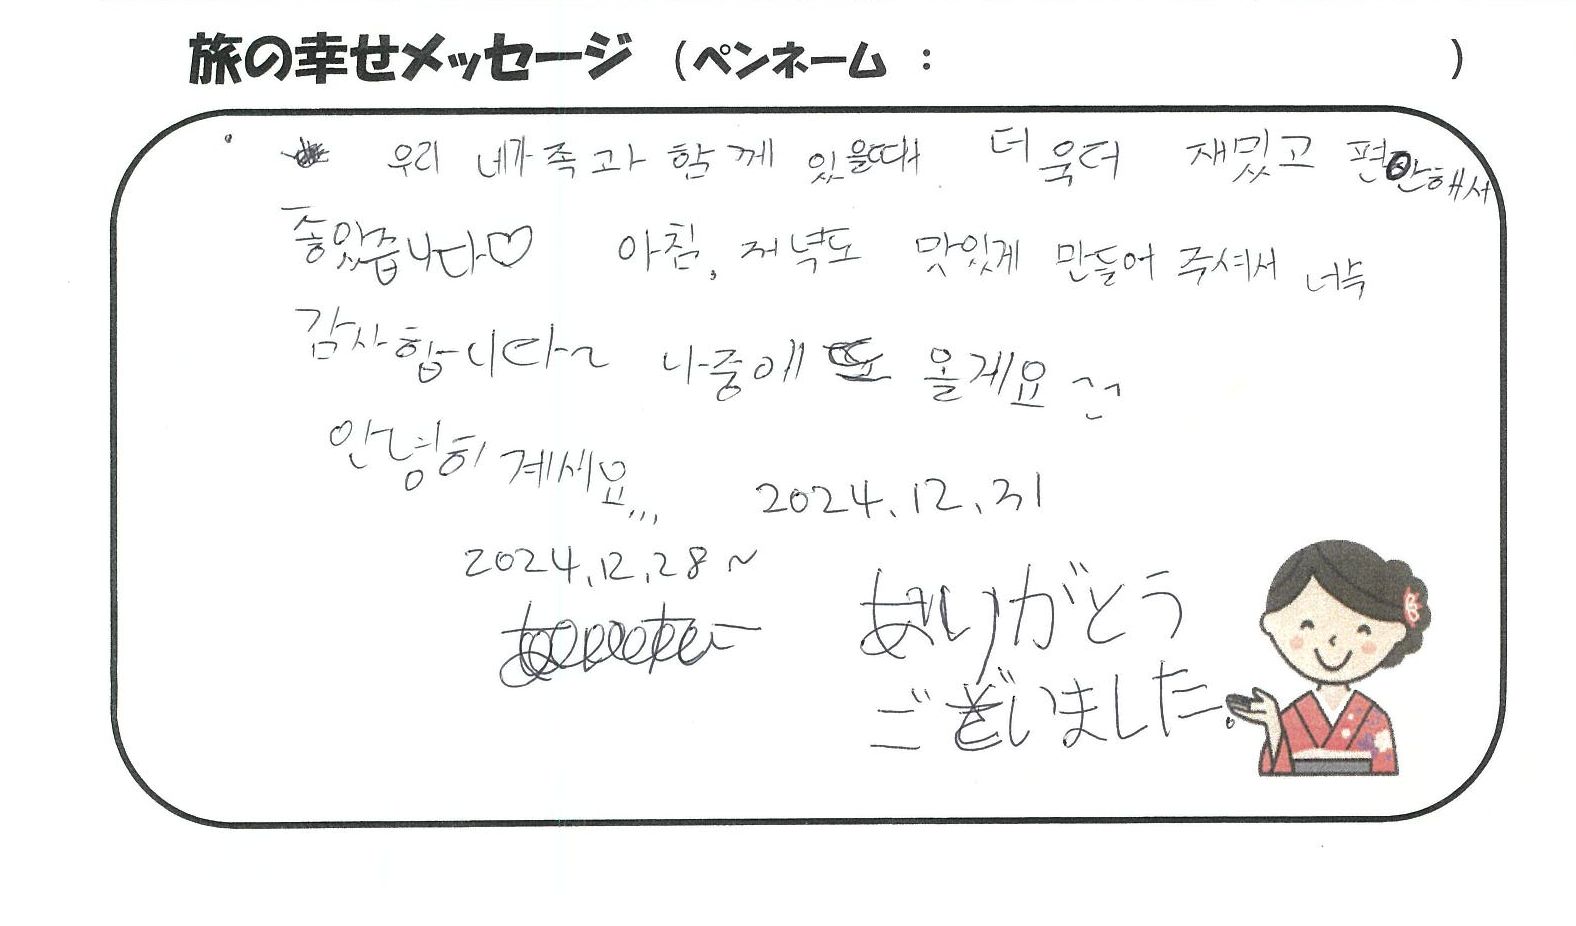 旅の幸せメッセージ （ペンネーム ： ）
우리 네가족과 함께 있을때 더 욱더 재밌고 편안해서
좋았습니다♡ 아침, 저녁도 맛있게 만들어 주셔서 너무
감사합니다~ 나중에 또 올게요 ^^
안녕히 계세요,,, 2024.12.31
2024.12.28~
ありがとう
ございました。